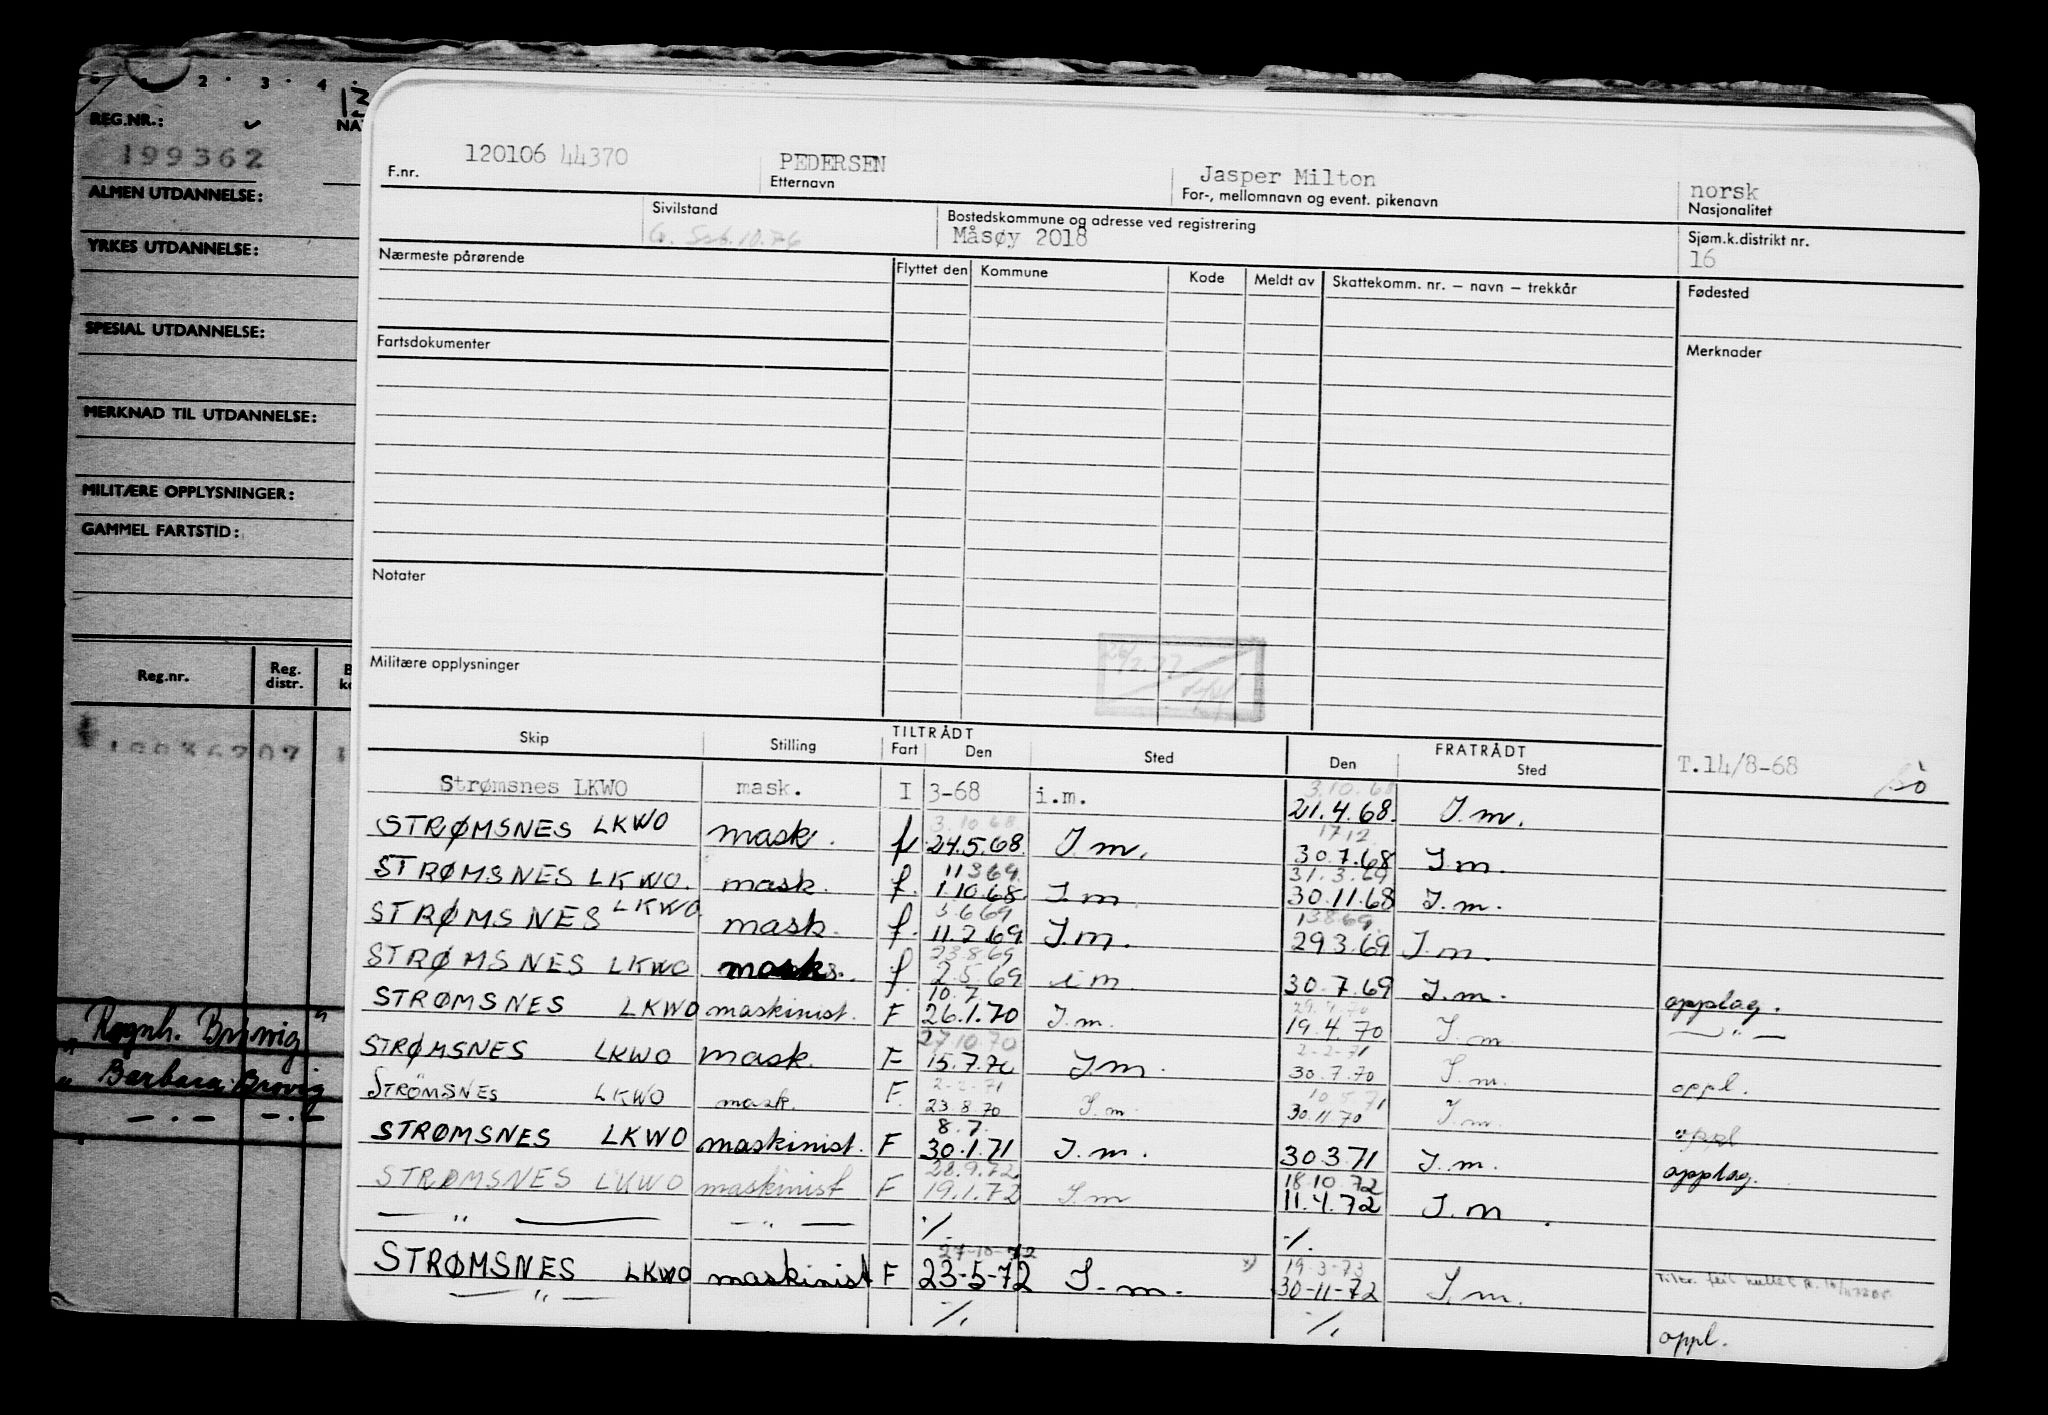 2 · 3 · 4 ·
13
REG.NR.:
NA
199362
ALMEN UTDANNELSE:
YRKES UTDANNELSE:
SPESIAL UTDANNELSE:
MERKNAD TIL UTDANNELSE:
MILITÆRE OPPLYSNINGER:
GAMMEL FARTSTID:
Reg.nr. Reg. distr.
" Ragnh. Brøvig"
" Barbara Brovig
— . — — . —
F.nr. 120106 44370
PEDERSEN
Etternavn
Jasper Milton
For-, mellomnavn og event. pikenavn
norsk
Nasjonalitet
Sivilstand
Bostedskommune og adresse ved registrering
Måsøy 2018
Sjøm.k.distrikt nr.
16
Nærmeste pårørende
Flyttet den Kommune Kode Meldt av Skattekomm. nr. – navn – trekkår
Fødested
Fartsdokumenter
Merknader
Notater
Militære opplysninger
TILTRÅDT FRATRÅDT
Skip Stilling Fart Den Sted Den Sted
T.14/8-68
3.10.68
Strømsnes LKWO mask. I 3-68 i.m. 21.4.68. I.m.
3.10.68 1712
STRØMSNES LKWO mask. f 24.5.68. I.m. 30.7.68 I.m.
11369. 31.3.69
STRØMSNES LKWO. mask. f. 1.10.68. I.m. 30.11.68 I.m.
3.6.69 13.8.69.
STRØMSNES LKWO. mask. f. 11.2.69 I.m. 29.3.69 I.m.
23.8.69
STRØMSNES LKWO mask. f. 2.5.69 i m 30.7.69 I.m. opplag.
10.7. 29.9.70
STRØMSNES LKWO maskinist. F 26.1.70 I.m. 19.4.70 I.m. — " —
27.10.70 2-2-71
STRØMSNES LKWO mask. F 15.7.70 I.m. 30.7.70 I.m. oppl.
2-2-71 10.5.71
STRØMSNES LKWO mask. F. 23.8.70 I.m. 30.11.70 I.m. oppl
8.7.
STRØMSNES LKWO maskinist. F 30.1.71 I.m. 30.3.71 I.m. opplag.
28.9.72 18.10.72
STRØMSNES LKWO maskinist F 19.1.72 I.m 11.4.72 I.m.
— " — — " — ·/. ·/.
27-10-72 19-3-73
STRØMSNES LKWO maskinist F 23-5-72 I.m. 30-11-72 I.m.
— " — ·/. ·/. oppl.